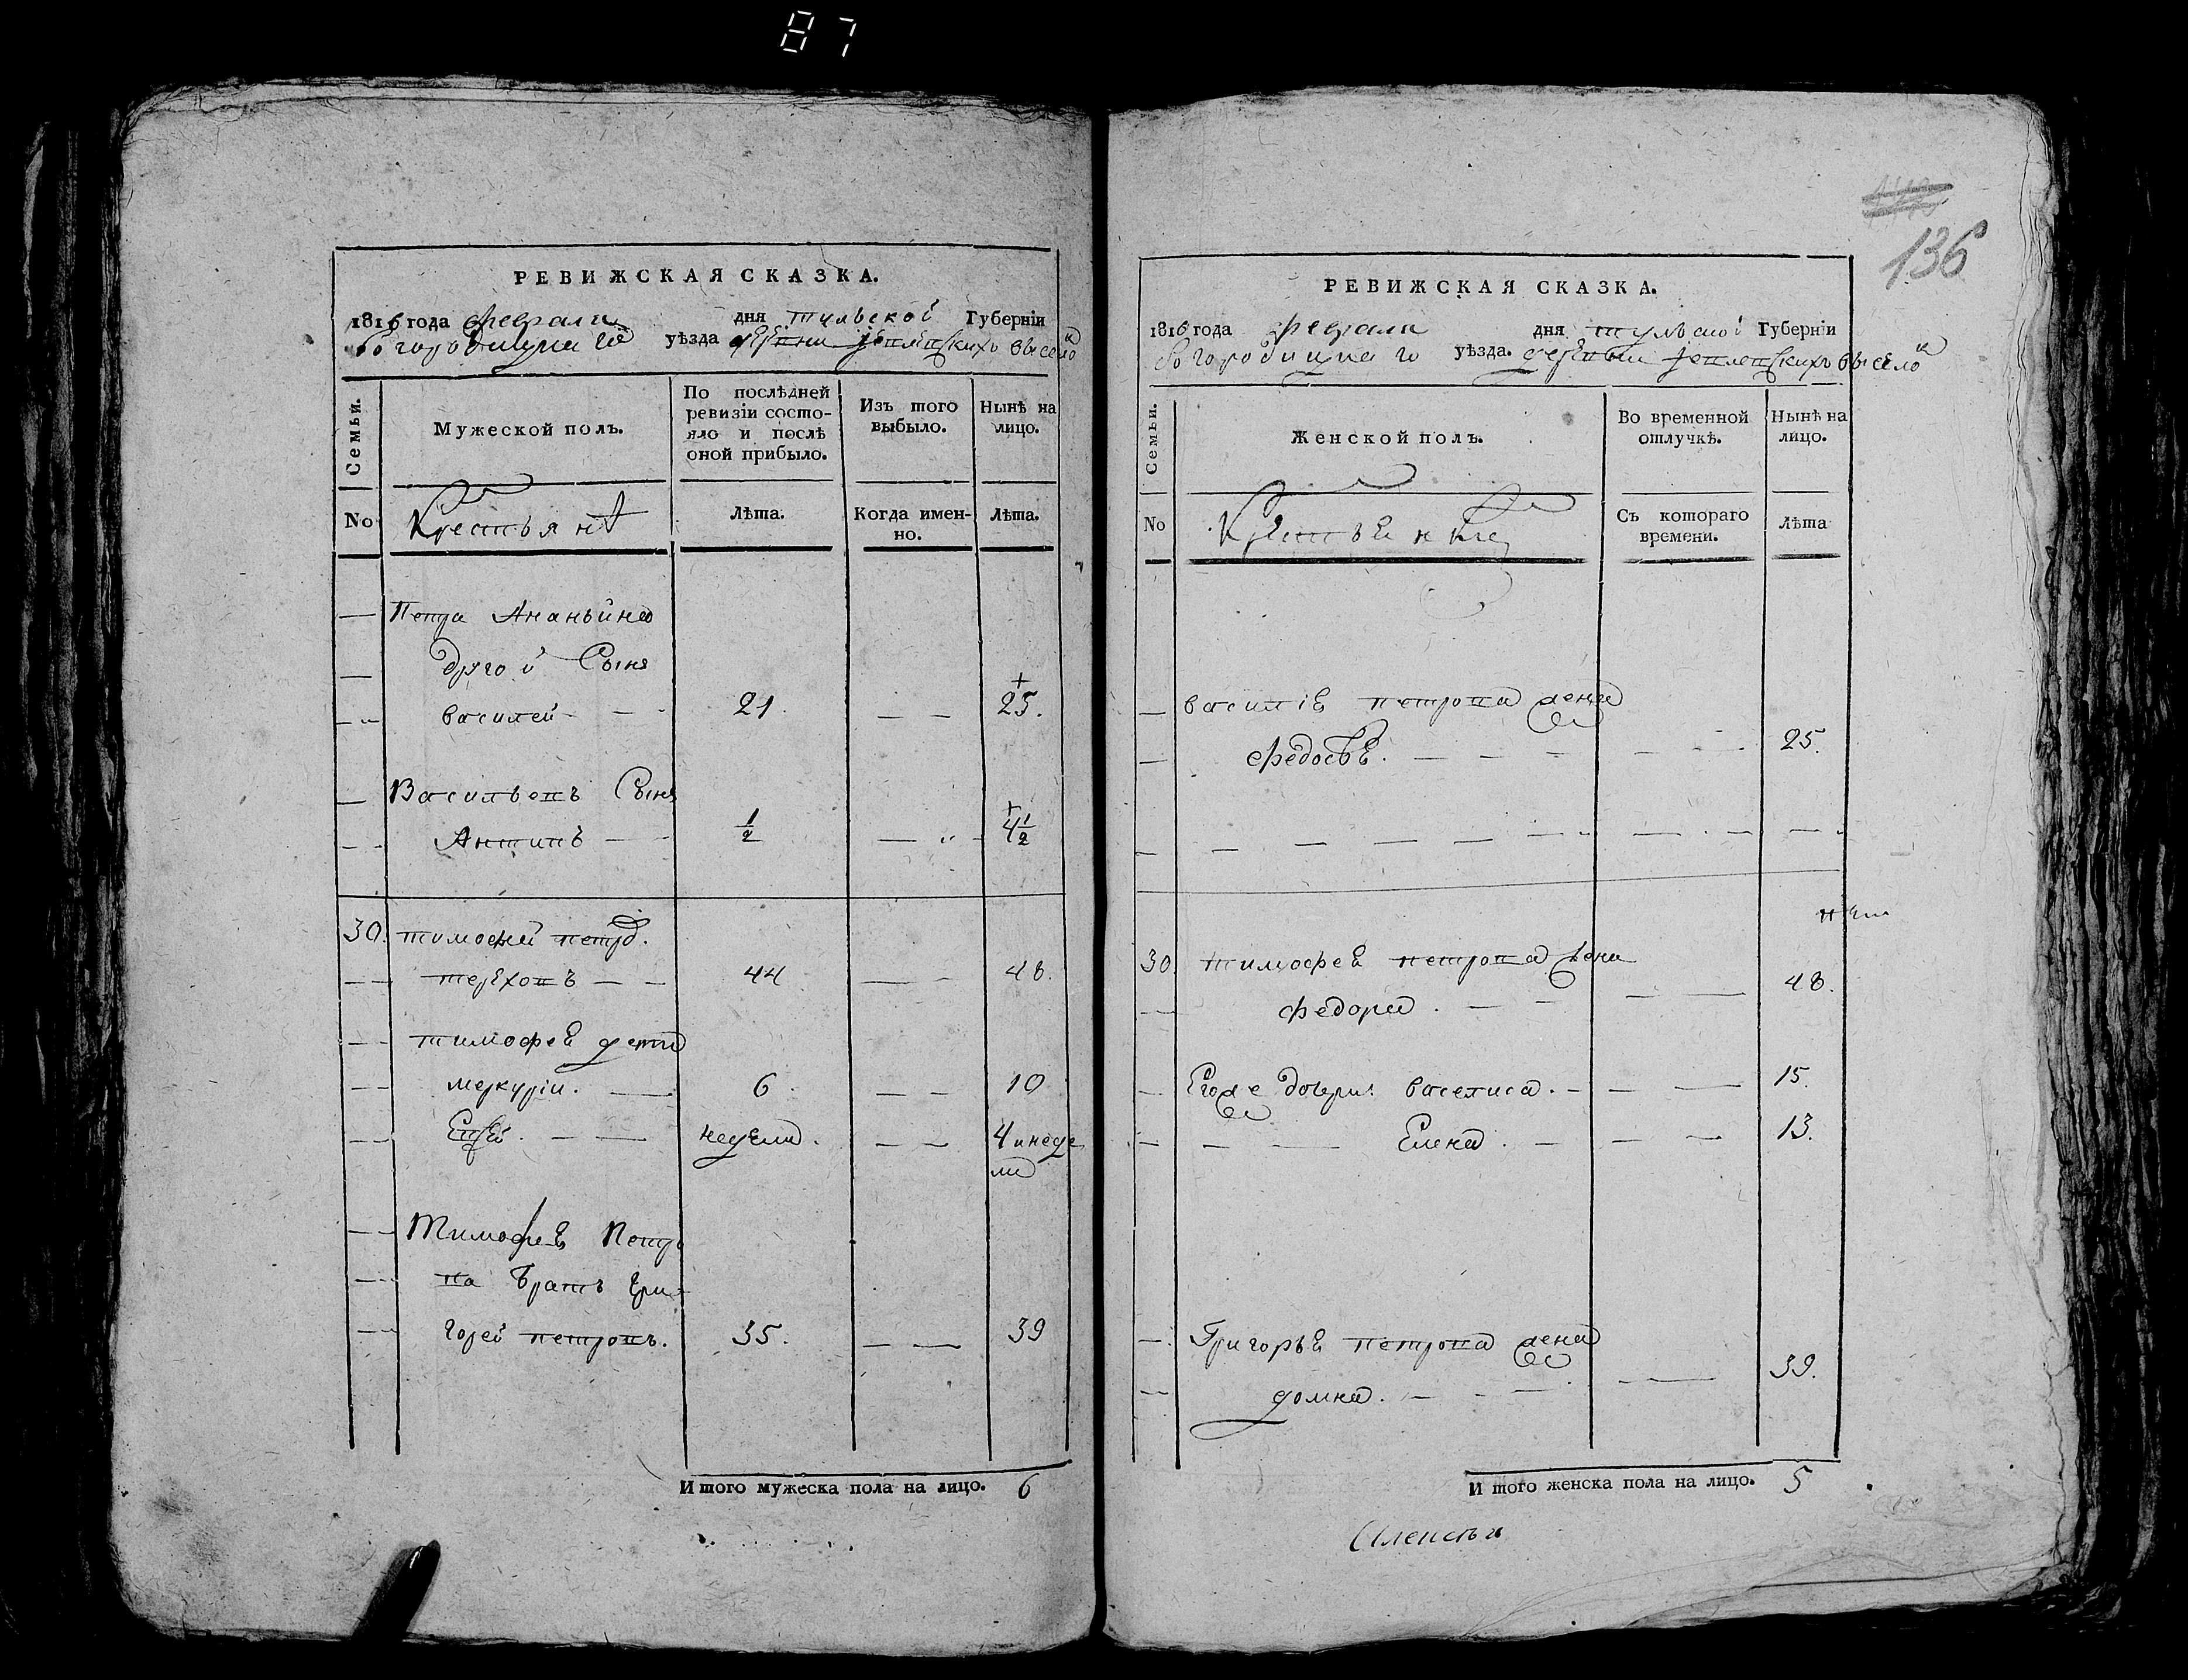 87
136
РЕВИЖСКАЯ СКАЗКА.
1816 года февраля дня тульской Губернiи
богородицкаго уѣзда деревни выселок
Семьи. Мужеской полъ. По послѣдней ревизiи состояло и послѣ оной прибыло. Изъ того выбыло. Нынѣ на лицо.
No Крестьянѣ Лѣта. Когда именно. Лѣта.
Петра Ананьина
другой Сынъ
василей 21 25.
Васильевъ Сынъ
Антипъ ½ 4½
30. тимофей петро.
тереховъ 44 48.
тимофея дети
меркурiи. 6 10
недели. 4 инеде
ли
Тимофея Петро
ва братъ гри
горей петровъ. 35. 39
Итого мужеска пола на лицо. 6
РЕВИЖСКАЯ СКАЗКА.
1816 года февраля дня тульской Губернiи
богородицкаго уѣзда. деревни выселок
Семьи. Женской полъ. Во временной отлучкѣ. Нынѣ на лицо.
No Съ котораго времени. Лѣта
василiя петрова жена
федосья. 25.
30 тимофея петрова жена
федора. 48.
Егоже дочери: василиса. 15.
Елена. 13.
Григорья петрова жена
домна. 39.
Итого женска пола на лицо. 5